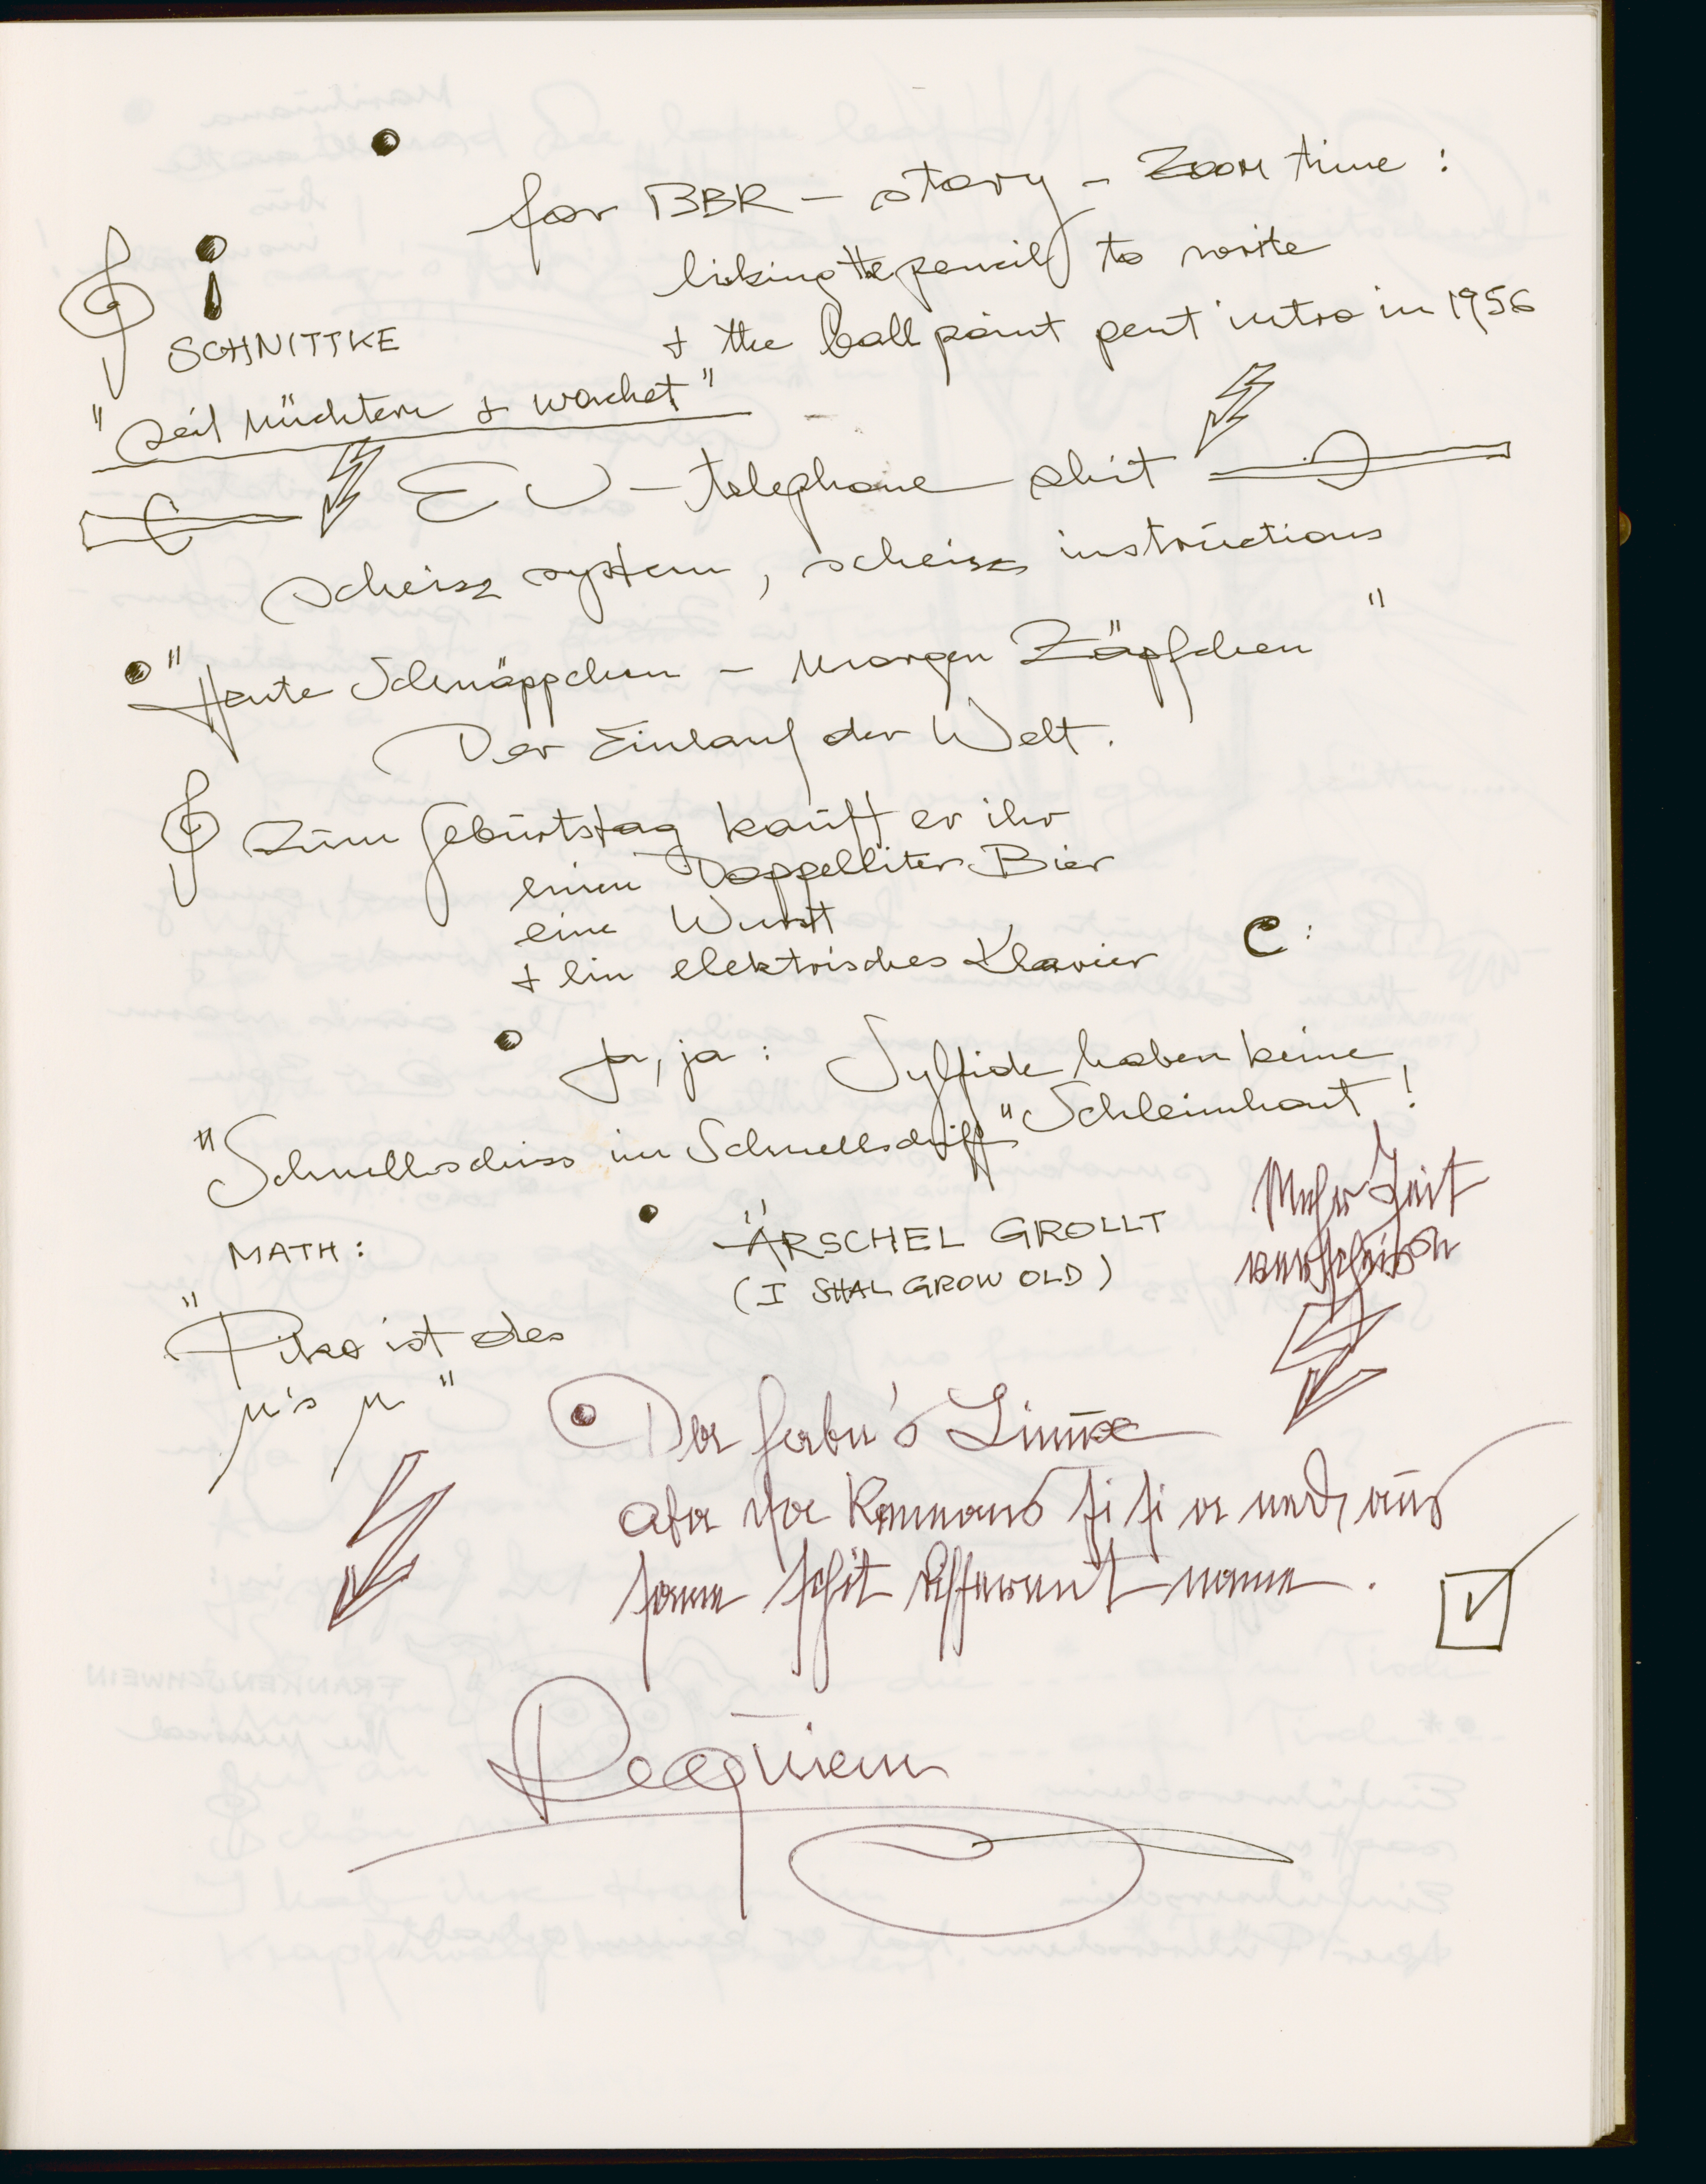 for BBR – story – Zoom time :
licking the pencil to write
+ the ball point pent intro in 1956
SCHNITTKE
"seit nüchtern + wachet"
EU – telephone shit
scheisz system, scheisz instructions
"Heute Schnäppchen – morgen Zäpfchen"
Der Einlauf der Welt.
Zum Geburtstag kauft er ihr
einen Doppelliter Bier
eine Wurst
+ ein elektrisches Klavier
C :
Ja, ja : Sylfide haben keine
Schleimhaut !
"Schnellschiss im Schnellschiff"
Mehr Zeit
verscheissen
ÄRSCHEL GROLLT
(I SHAL GROW OLD)
MATH :
"Piko ist des
µ's µ"
Der
aber
same schit different name .
Requiem